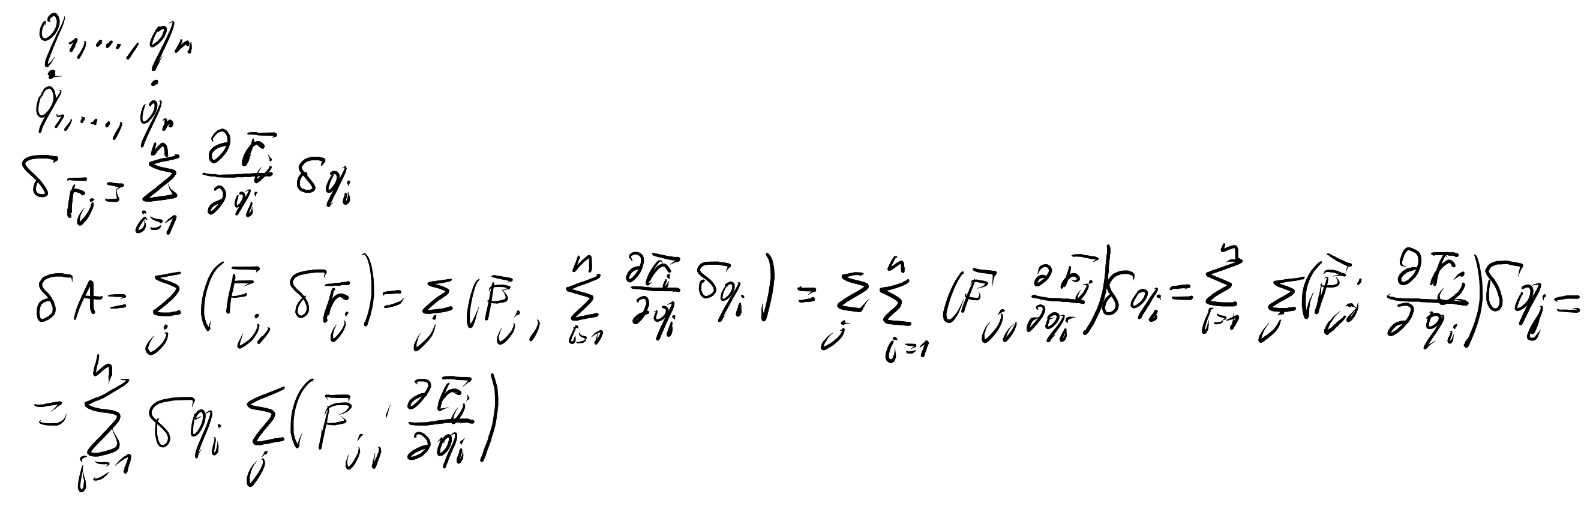 q₁, ..., qₙ
q̇₁, ..., q̇ₙ
δr̄ⱼ = ∑ᵢ₌₁ⁿ ∂r̄ⱼ/∂qᵢ δqᵢ
δA = ∑ⱼ (F̄ⱼ, δr̄ⱼ) = ∑ⱼ (F̄ⱼ, ∑ᵢ₌₁ⁿ ∂r̄ⱼ/∂qᵢ δqᵢ) = ∑ⱼ ∑ᵢ₌₁ⁿ (F̄ⱼ, ∂r̄ⱼ/∂qᵢ) δqᵢ = ∑ᵢ₌₁ⁿ ∑ⱼ (F̄ⱼ, ∂r̄ⱼ/∂qᵢ) δqᵢ =
= ∑ᵢ₌₁ⁿ δqᵢ ∑ⱼ (F̄ⱼ, ∂r̄ⱼ/∂qᵢ)